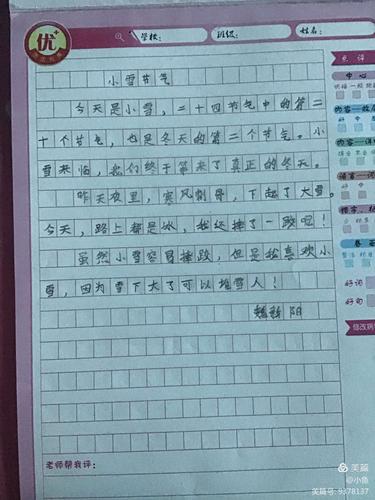 优
学校：
班级：
姓名：
小雪节气
今天是小雪，二十四节气中的第二
十个节气，也是冬天的第二个节气。小
雪来临，我们终于等来了真正的冬天。
昨天夜里，寒风刺骨，下起了大雪。
今天，路上都是冰，我还摔了一跤呢！
虽然小雪容易摔跤，但是我喜欢小
雪，因为雪下大了可以堆雪人！
阳
老师帮我评：
点评
中心
好词
好句
美篇
@小鱼
美篇号: 9378137